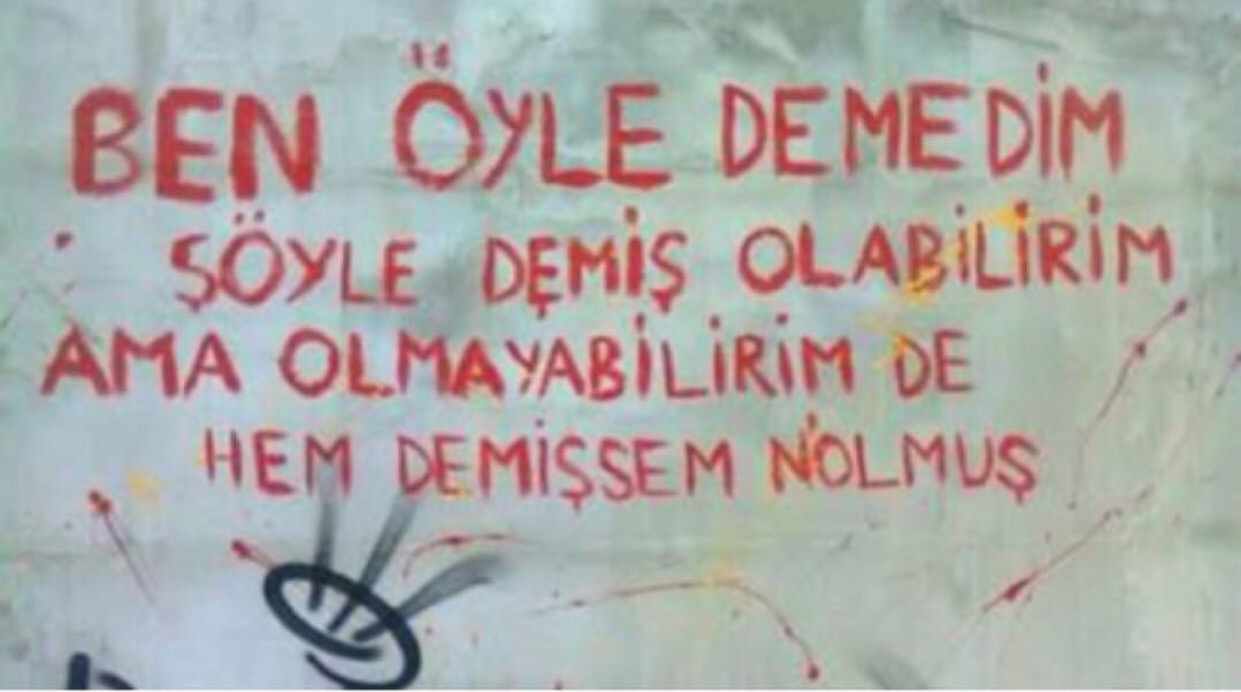 BEN ÖYLE DEMEDİM
ŞÖYLE DEMİŞ OLABİLİRİM
AMA OLMAYABİLİRİM DE
HEM DEMİŞSEM N'OLMUŞ